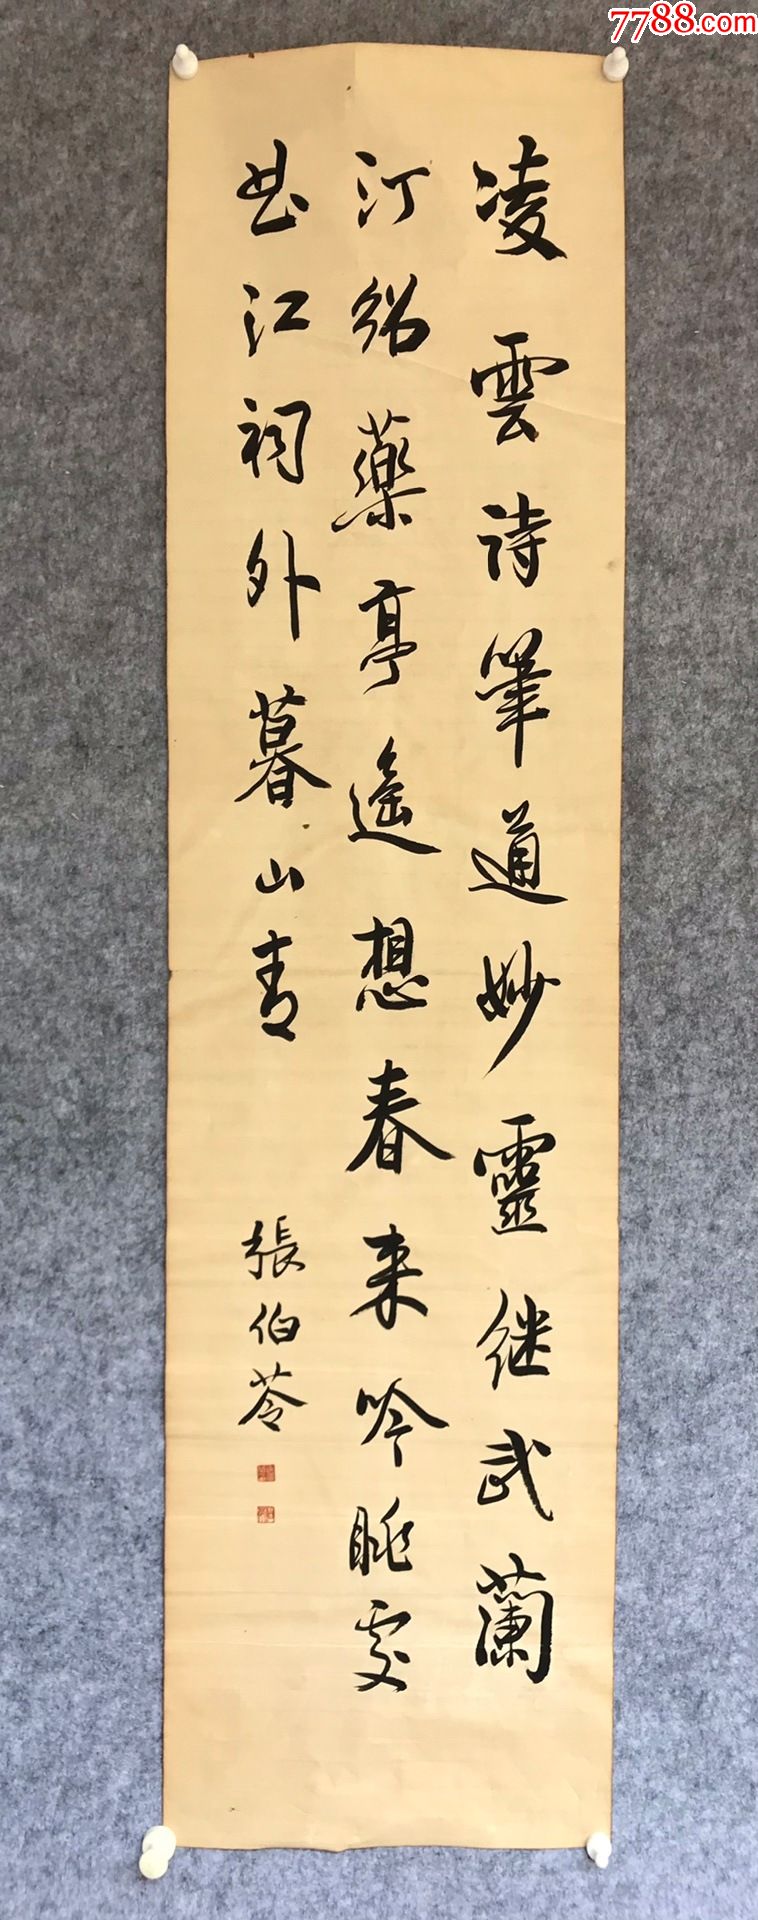 7788.com
凌雲詩筆道妙靈继武蘭
汀紹藥亭遙想春来吟眺處
曲江祠外暮山青
張伯苓